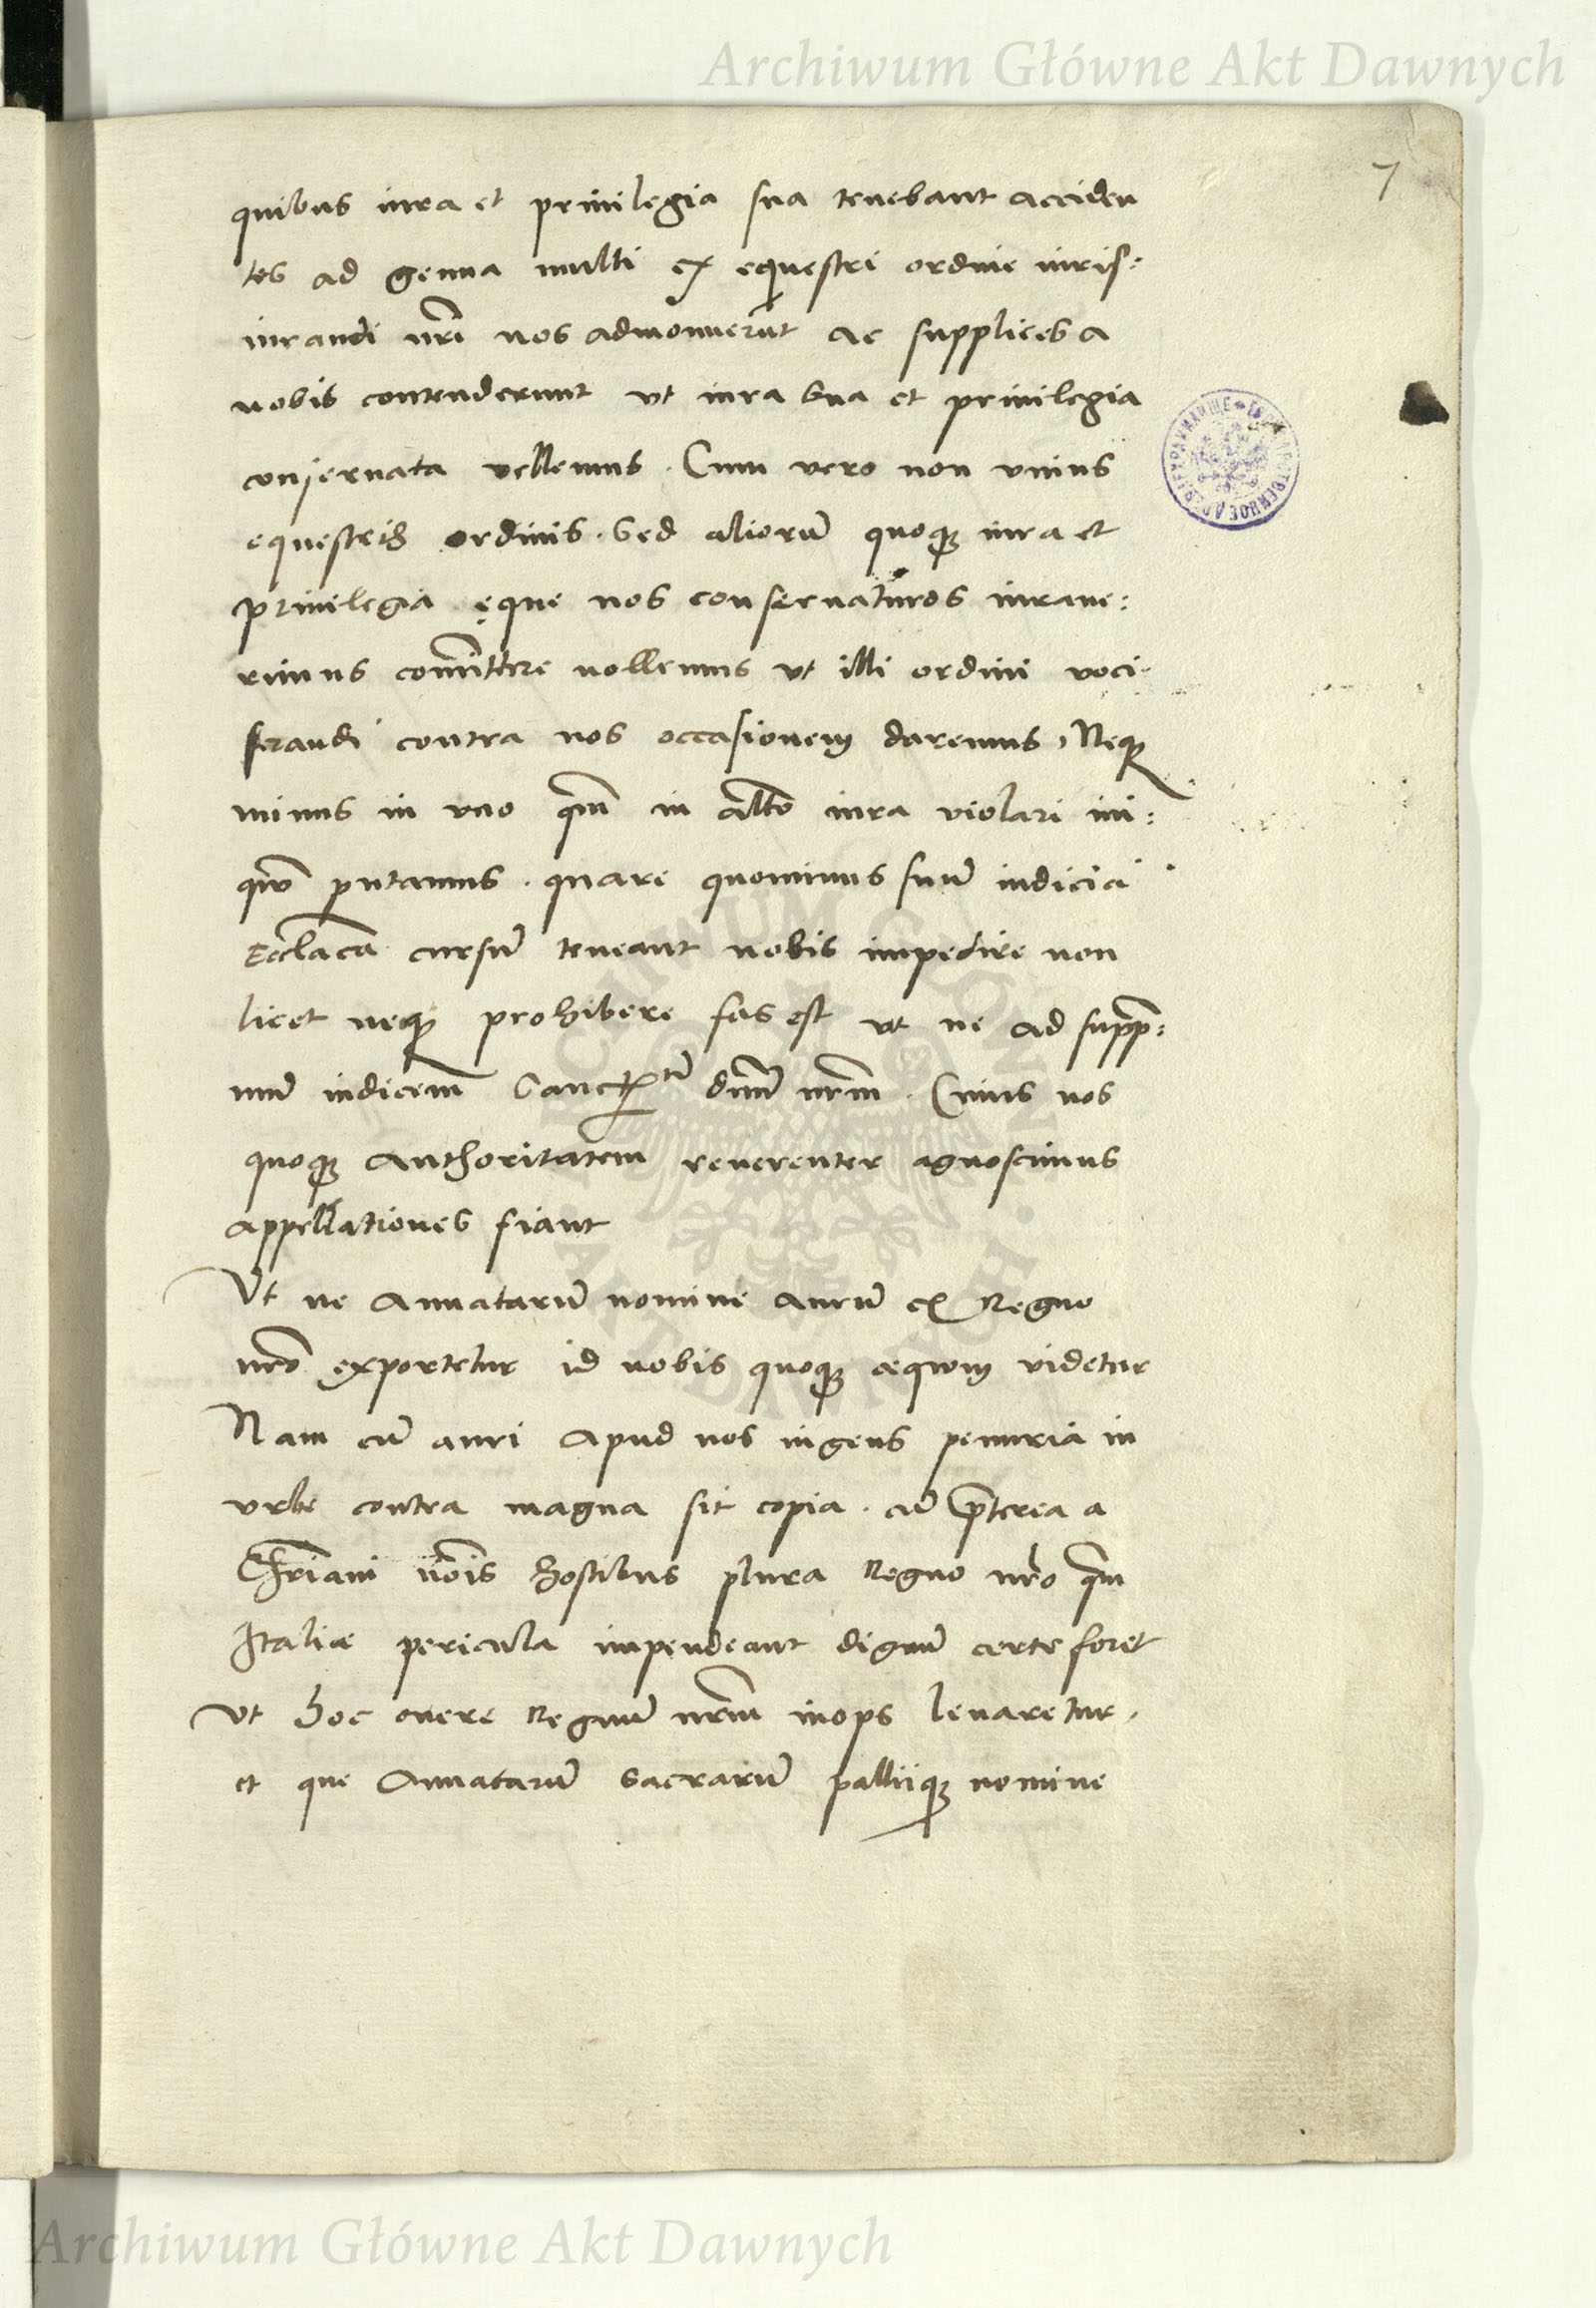 Archiwum Główne Akt Dawnych
7
quibus iura et priuilegia sua tenebant acciden
tes ad genua multi ex equestri ordine iuris:
iurandi nrī nos admonuerūt ac supplices a
nobis contenderunt vt iura sua et priuilegia
conseruata vellemus. Cum vero non vnius
equestris ordinis. sed aliorū quoqꝫ iura et
priuilegia ęque nos conseruaturos iuraue:
rimus comīttere nollemus vt illi ordini voci-
ferandi contra nos occasionem daremus, Neqꝫ
minus in vno qm̄ in alt̄o iura violari ini:
qūo putamus. quare quominus suū iudicia
Eccl̄aca cursū teneant nobis impedire non
licet neqꝫ prohibere fas est vt ne ad supp̄:
mū iudicem Sanct dnm̄ nrm̄. Cuius nos
quoqꝫ authoritatem reuerenter agnoscimus
appellationes fiant
Vt ne Annatarū nomine aurū ex Regno
nrō exportetur id nobis quoqꝫ aequom videtur
Nam cū auri apud nos ingens penuria in
vrbe contra magna sit copia. cū p̄terea a
Chrīani nōis hostibus plura Regno nrō qm̄
Italiae pericula impendeant dignū certe foret
vt hoc onere Regnū nrm̄ inops leuaretur,
et que Annatarū sacrarū palliiqꝫ nomine
Archiwum Główne Akt Dawnych